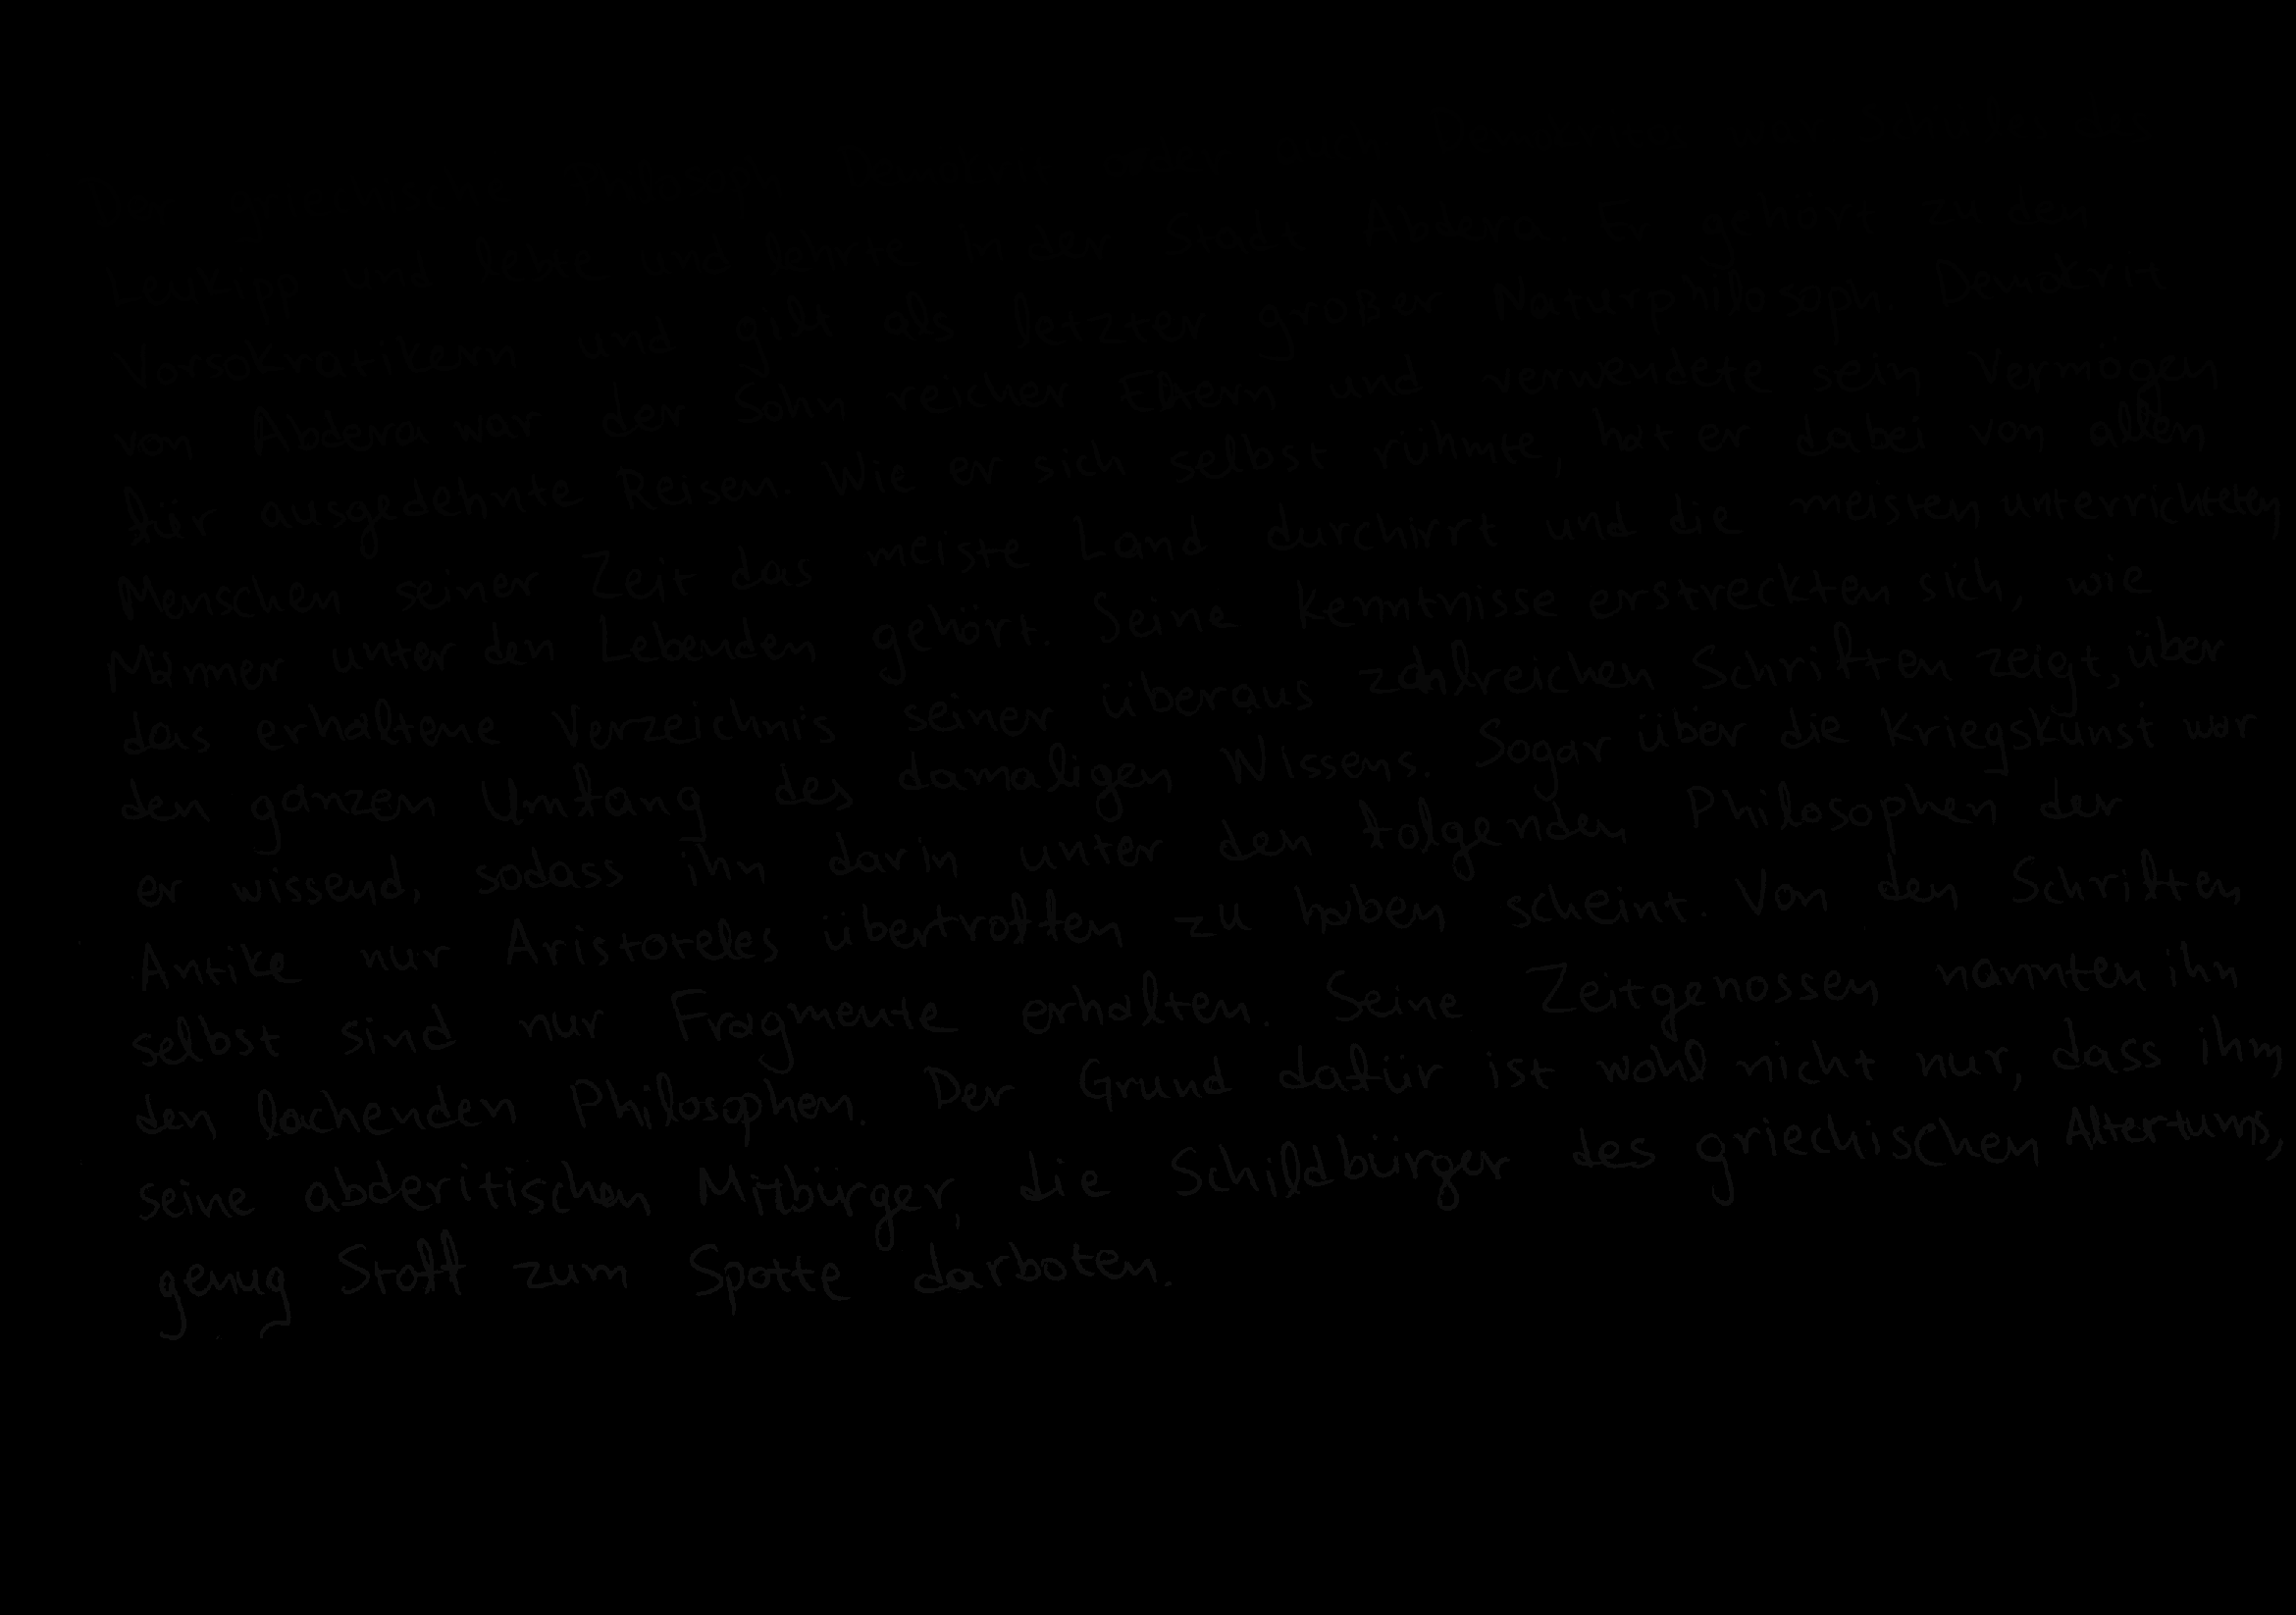 Der griechische Philosoph Demokrit
Leukipp und lebte und lehrte in der Stadt Abdera. Er gehört zu den
Vorsokratikern und gilt als letzter großer Naturphilosoph. Demokrit
von Abdera war der Sohn reicher Eltern und verwendete sein Vermögen
für ausgedehnte Reisen. Wie er sich selbst rühmte, hat er dabei von allen
Menschen seiner Zeit das meiste Land durchirrt und die meisten unterrichteten
Männer unter den Lebenden gehört. Seine Kenntnisse erstreckten sich, wie
das erhaltene Verzeichnis seiner überaus zahlreichen Schriften zeigt, über
den ganzen Umfang des damaligen Wissens. Sogar über die Kriegskunst war
er wissend, sodass ihn darin unter den folgenden Philosophen der
Antike nur Aristoteles übertroffen zu haben scheint. Von den Schriften
selbst sind nur Fragmente erhalten. Seine Zeitgenossen nannten ihn
den lachenden Philosophen. Der Grund dafür ist wohl nicht nur, dass ihm
seine abderitischen Mitbürger, die Schildbürger des griechischen Altertums,
genug Stoff zum Spotte darboten.